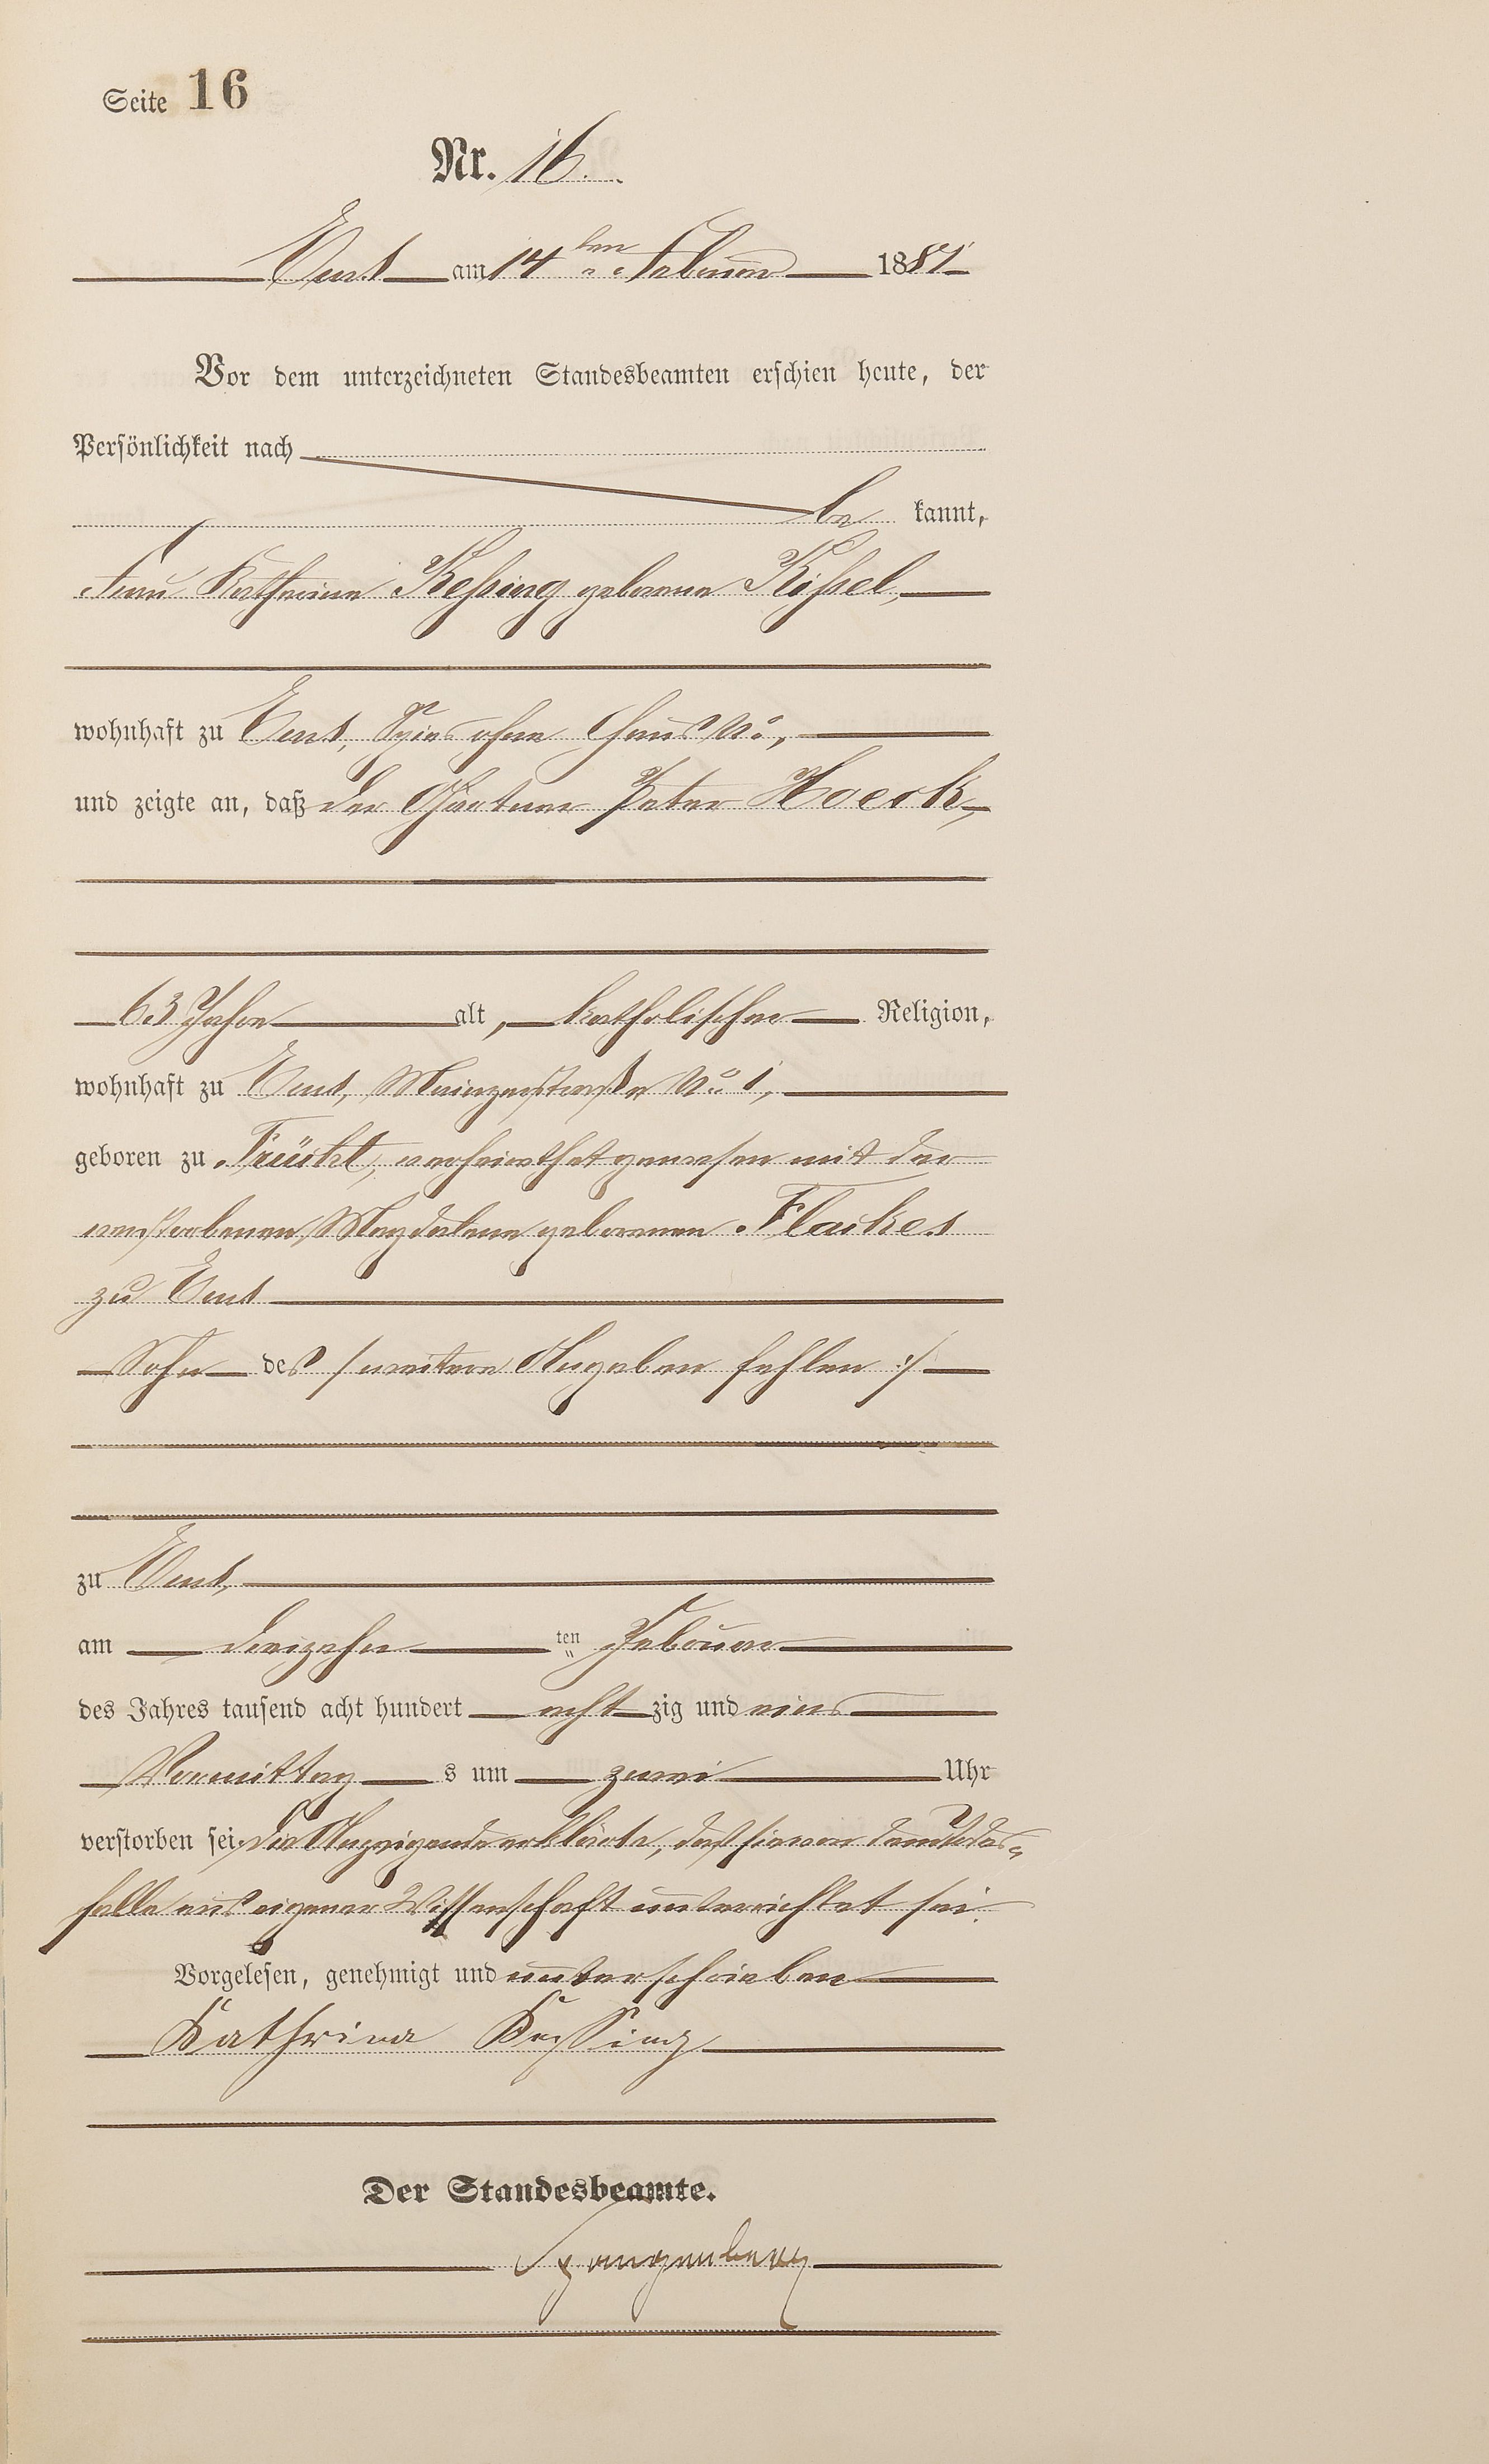 Seite 16
Nr. 16.
Ems am 14ten Februar 1881
Vor dem unterzeichneten Standesbeamten erschien heute, der
Persönlichkeit nach
be kannt,
Frau Katharina Keßing geborene Kißel,
wohnhaft zu Ems, Spies ohne Haus No.,
und zeigte an, daß der Gärtner Peter Hoeck,
63 Jahre alt, katholischer Religion,
wohnhaft zu Ems, Mainzerstraße No. 1,
geboren zu Frücht, verheirathet gewesen mit der
verstorbenen Magdalena geborenen Flackes
zu Ems
Sohn des /: weitere Angaben fehlen :/
zu Ems,
am dreizehn ten Februar
des Jahres tausend acht hundert acht zig und eins
Vormittag s um zwei Uhr
verstorben sei. Die Anzeigende erklärte, daß sie von dem Todes-
falle aus eigener Wissenschaft unterrichtet sei.
Vorgelesen, genehmigt und unterschrieben
Kathrina Kessing
Der Standesbeamte.
Spangenberg